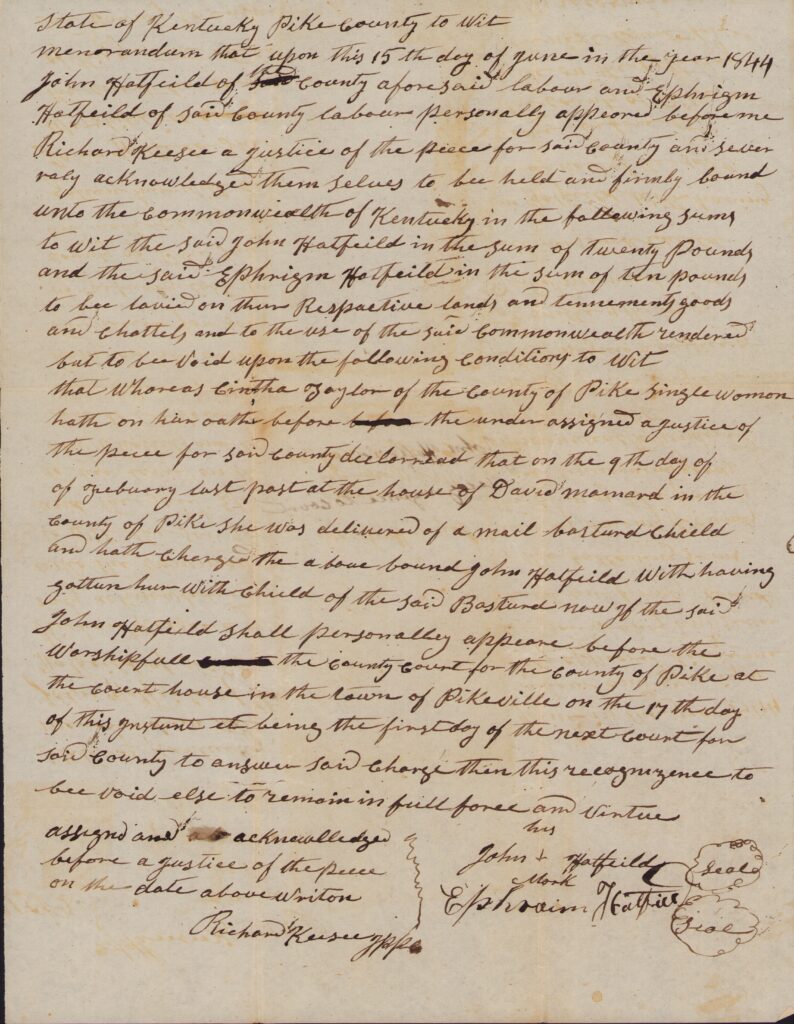 State of Kentucky Pike County to Wit
memorandum that upon this 15th day of June in the year 1844
John Hatfeild of County aforesaid labour and Ephrigm
Hatfeild of said County labour personally appeared before me
Richard Keesee a justice of the peece for said County and sever
raly acknowledged them selves to bee held and firmly bound
unto the Commonwealth of Kentucky in the following sums
to wit the said John Hatfeild in the sum of twenty Pounds
and the said Ephrigm Hatfeild in the sum of ten pounds
to bee lavied on thur Respactive lands and tennements goods
and Chattels and to the use of the said Commonwealth rendered
but to bee void upon the following Conditions to Wit
that Whereas Cintha Taylor of the County of Pike Single Woman
hath on hur oathe before the under assigned a justice of
the peece for said County declorread that on the 9th day of
of Febuary last past at the house of David mamard in the
County of Pike She Was delivered of a mail basturd Chield
and hath Charged the above bound John Hatfeild With having
gotten hur With Chield of the said Basturd now If the said
John Hatfeild Shall personalley appeare before the
Worshipfull the County Court for the County of Pike at
the Court house in the town of Pikeville on the 17th day
of this instant et being the first day of the next Court for
said County to answer said Charge then this recognizence to
bee void else to remain in full force and virtue
assignd and acknowlledged
before a justice of the peece
on the date above Writon
Richard Keesee Jppc
his
John + Hatfeild
Mark
Ephraim Hatfield
Seal
Seal